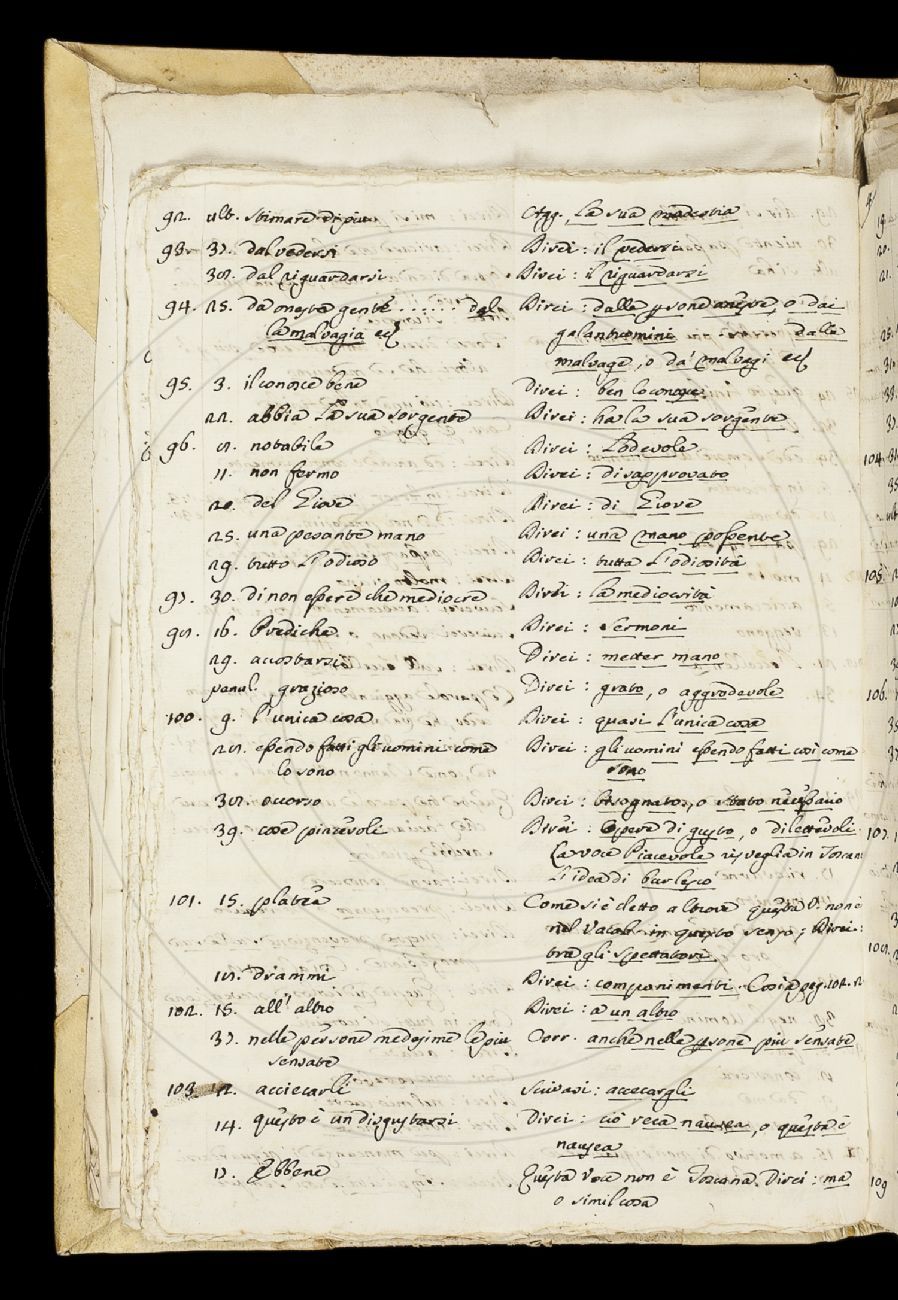 92. ult. stimare di più Agg. La sua modestia
93. 37. dal vedersi Direi: il vedersi
38. dal riguardarsi Direi: il riguardarsi
94. 25. da onesta gente ...... dal Direi: dalle psone oneste, o dai
la malvagia ec galantuomini dalle
malvage, o da' malvagi ec
95. 3. il conosce bene Direi: ben lo conosce
22. abbia La sua sorgente Direi: ha la sua sorgente
96. 8. notabile Direi: Lodevole
11. non fermo Direi: disapprovato
20. del Giove Direi: di Giove
25. una pesante mano Direi: una mano possente
29. tutto L'odioso Direi: tutta L'odiosità
97. 30. di non essere che mediocre Direi: la mediocrità
98. 16. Prediche Direi: Sermoni
29. accostarsi Direi: metter mano
penul. grazioso Direi: grato, o aggradevole
100. 9. l'unica cosa Direi: quasi L'unica cosa
28. essendo fatti gli uomini come Direi: gli uomini essendo fatti così come
lo sono sono
38. occorso Direi: bisognato, o stato necessario
39. cose piacevoli Direi: Opere di gusto, o dilettevoli
La voce Piacevole risveglia in Toscan
L'idea di burlesco
101. 15. platea Come si è detto altrove questa V. non è
nel Vocab. in questo senso; Direi:
tra gli Spettatori
18. drammi Direi: componimenti. Così a pag. 102.
102. 15. all'altro Direi: a un altro
37. nelle persone medesime le più Corr. anche nelle psone più sensate
sensate
103. 12. acciecarli Scrivasi: accecargli
14. questo è un disgustarsi Direi: ciò reca nausea, o questa è
nausea
17. Ebbene Questa voce non è Toscana. Direi: ma
o simil cosa